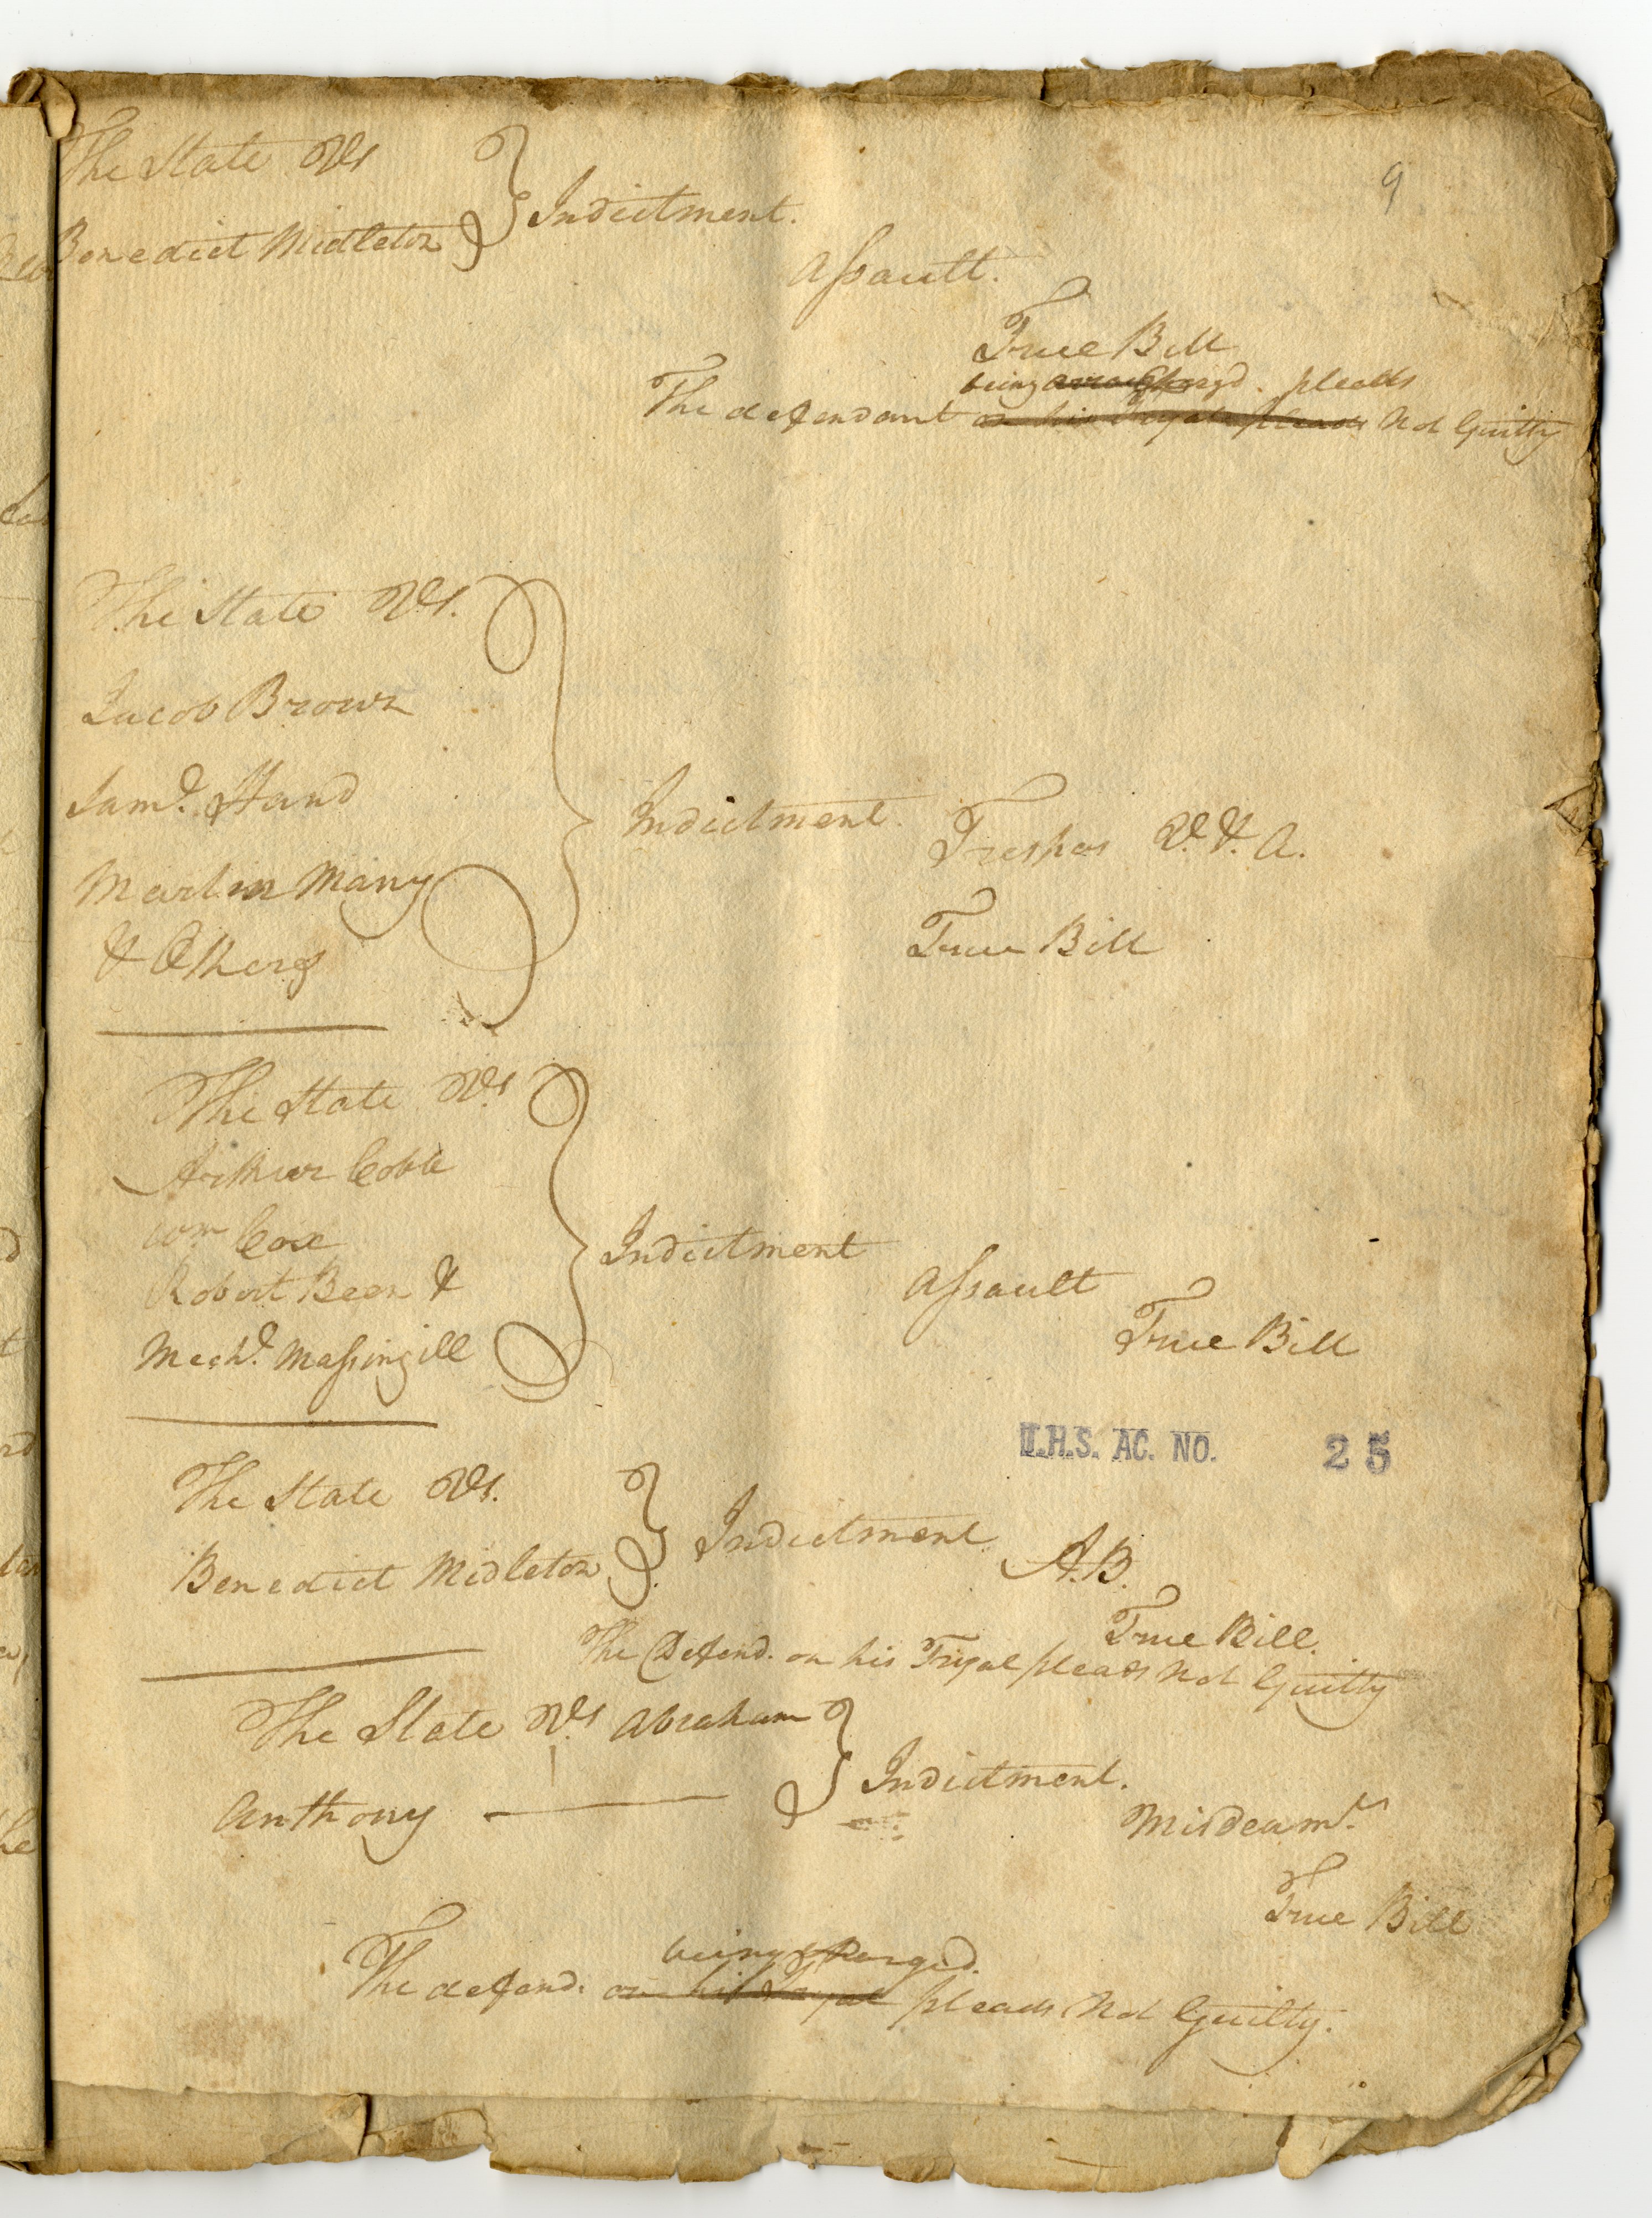 9
The State Vs
Benedict Midleton } Indictment.
Assault.
True Bill
being chargd. pleads
The defendant on his Tryal pleads Not Guilty
The State Vs.
Jacob Brown
Saml. Hand
Martin Many
& Others
Indictment. Trespas V. & A.
True Bill
The State Vs
Arthur Coble
Wm Cox
Robert Been &
Mechl. Massingill
Indictment
Assault
True Bill
T.H.S. AC. NO. 25
The State Vs.
Benedict Midleton } Indictment. A.B.
True Bill.
The Defend. on his Tryal pleads Not Guilty
The State Vs Abraham
Anthony } Indictment.
Misdeamr.
True Bill
being Charged.
The defend. on his Tryal pleads Not Guilty.